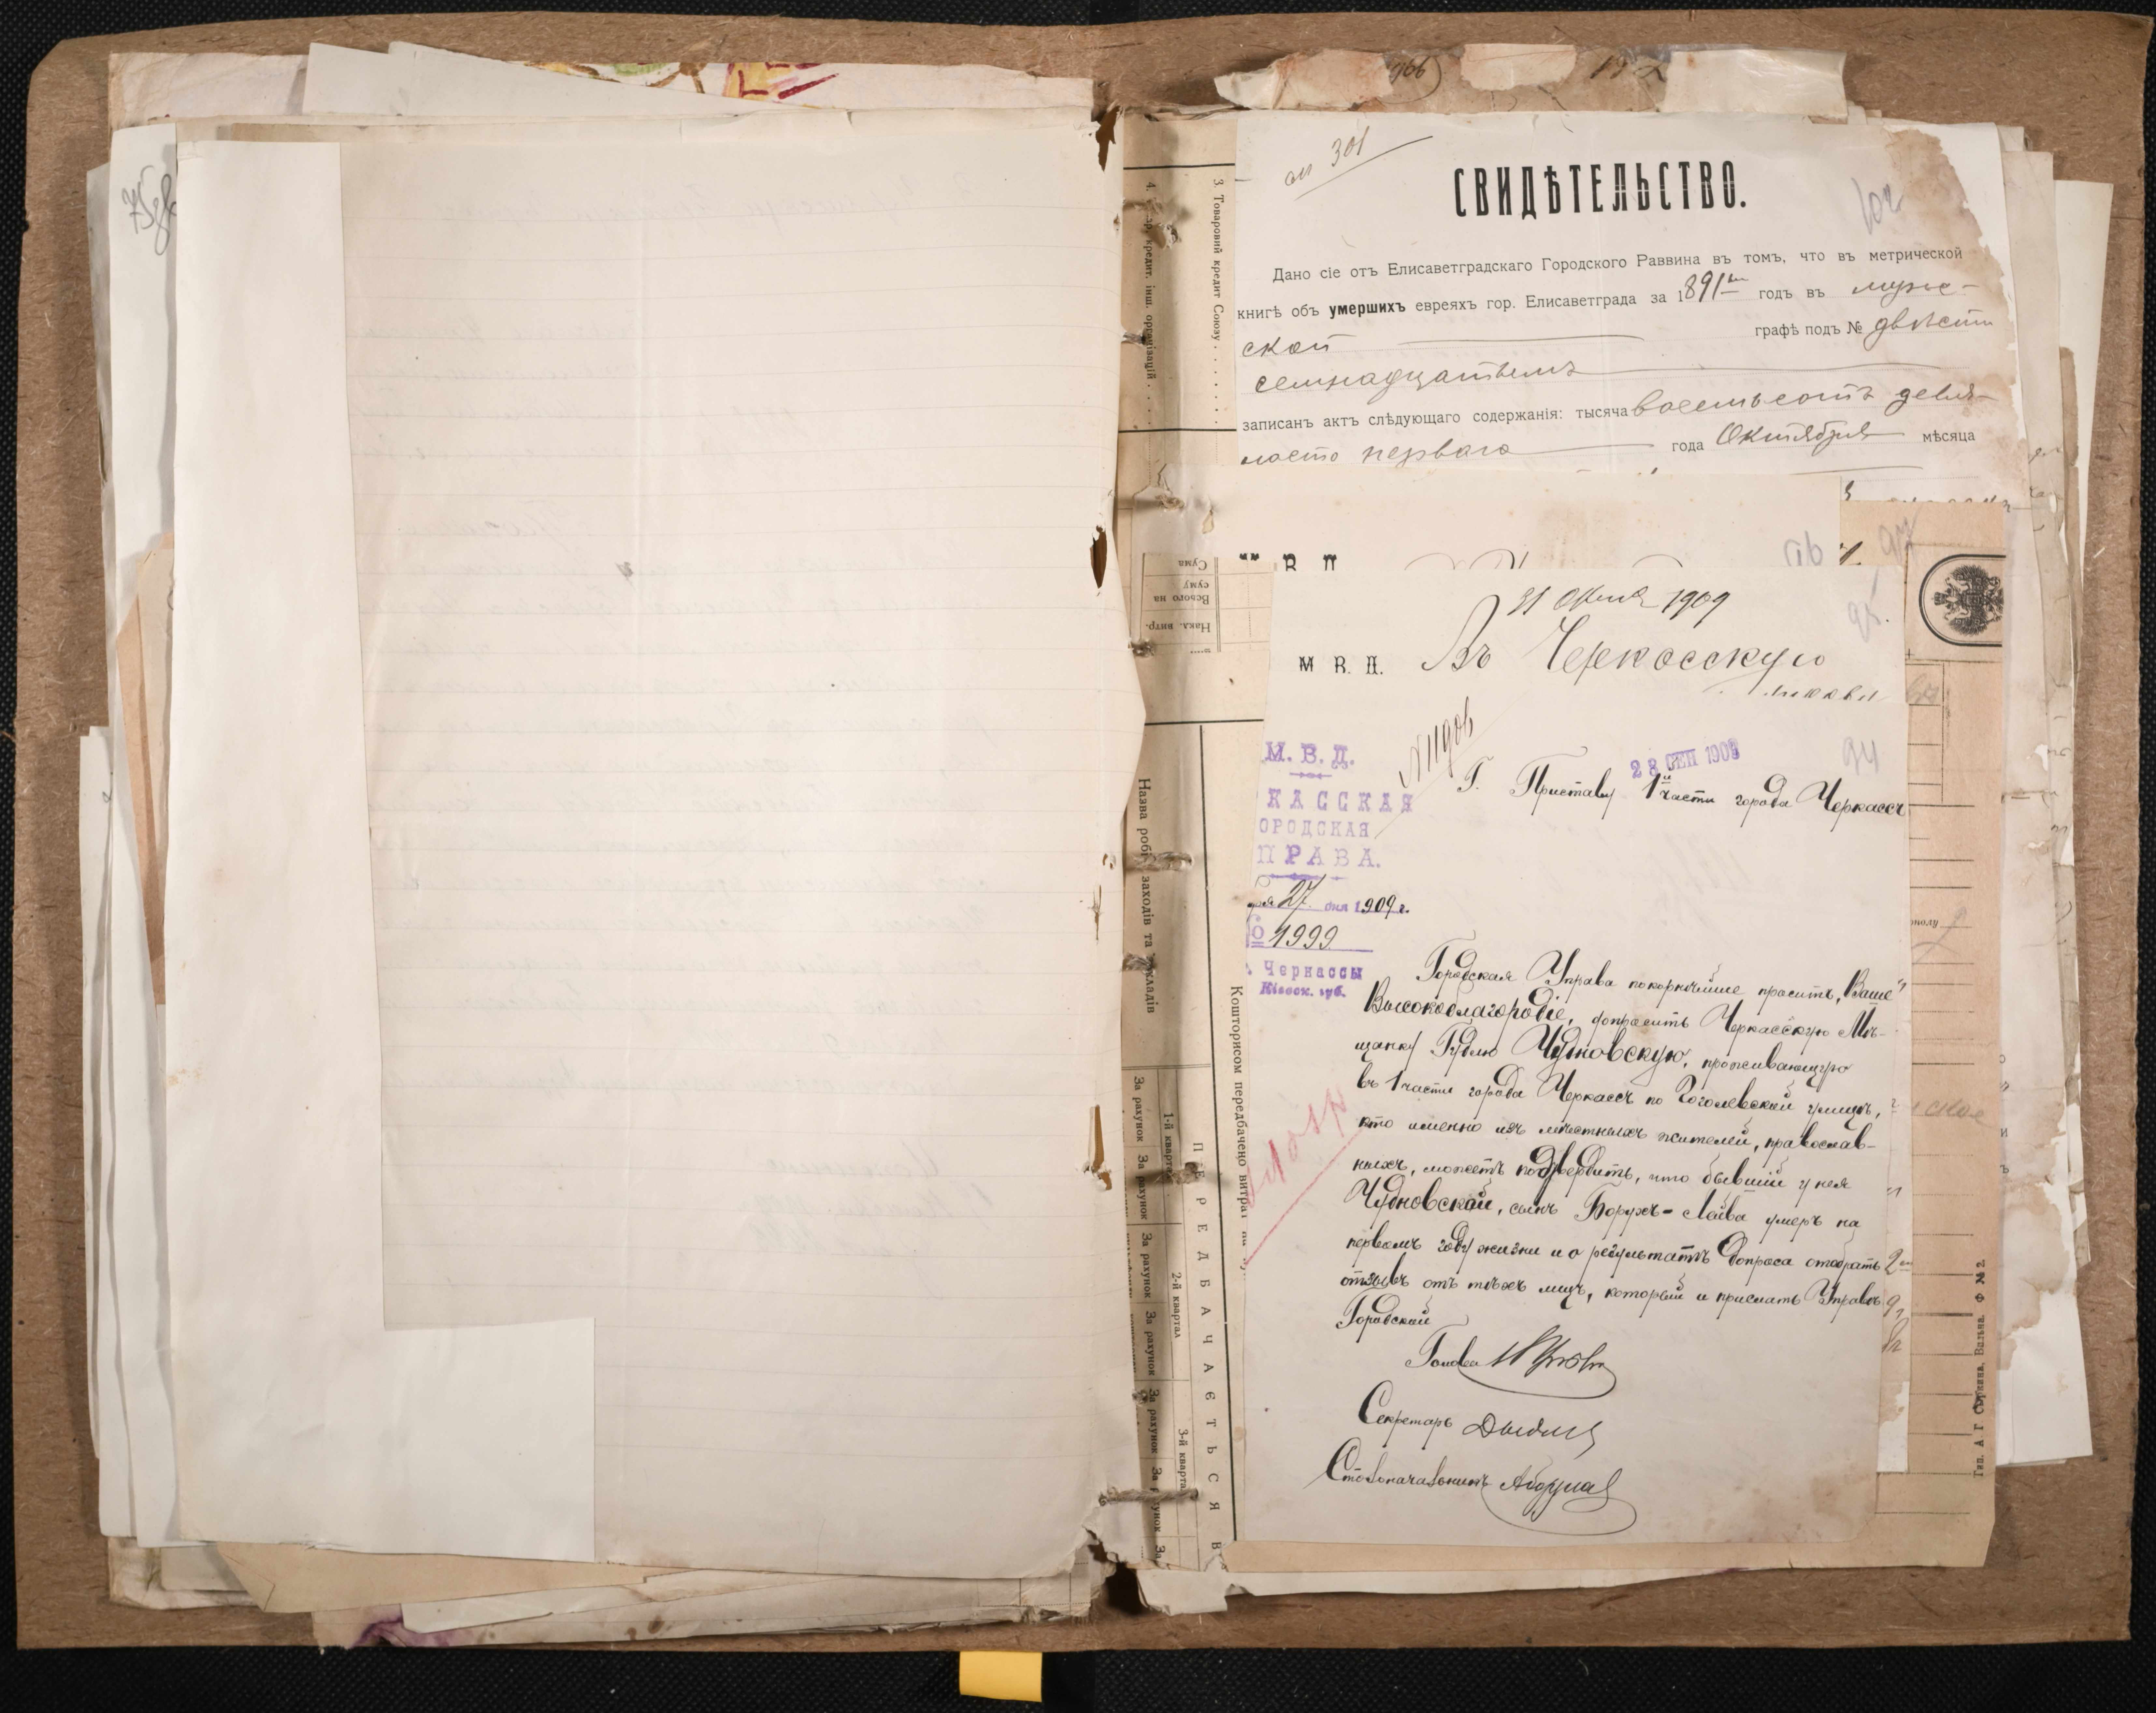 301
102
СВИДѢТЕЛЬСТВО.
Дано сіе отъ Елисаветградскаго Городского Раввина въ томъ, что въ метрической
книгѣ объ умершихъ евреяхъ гор. Елисаветграда за 1891 годъ въ мужс-
ской графѣ подъ № двѣсти
семнадцатымъ
записанъ актъ слѣдующаго содержанія: тысяча восемьсотъ девя-
носто перваго года Октября мѣсяца
3. Товаровий кредит Союзу
кредит. інш. організацій
Сума
Всього на суму
Накл. витр.
97
31 1909
95.
М. В. Д. Въ Черкасскую
94
№ 11906
28 СЕН 1909
Г. Приставу 1й части города Черкассъ
М. В. Д.
КАССКАЯ
ОРОДСКАЯ
ПРАВА.
27 дня 1909 г.
1999
Черкассы
Кіевск. губ.
Городская Управа покорнѣйше проситъ, Ваше
Высокоблагородіе, допросить Черкасскую Мѣ-
щанку Гудлю Чудновскую, проживающую
въ 1 части города Черкассъ по Гоголевской улицѣ,
кто именно изъ мѣстныхъ жителей, православ-
ныхъ, можетъ подтвердить, что бывшій у нея
Чудновской, сынъ Борухъ-Лейва умеръ на
первомъ году жизни и о результатѣ допроса отобрать
отзывъ отъ тѣхъ лицъ, который и прислать Управѣ
Городской
Голова
Секретарь
Столоначальникъ
Назва робіт заходів та закладів
Кошторисом передбачено витрат
ПЕРЕДБАЧАЄТЬСЯ В
1-й квартал
2-й квартал
3-й квартал
За рахунок За рахунок За рахунок За рахунок За рахунок За рахунок За
Тип. А. Г. Сыркина, Вильна. Ф № 2.